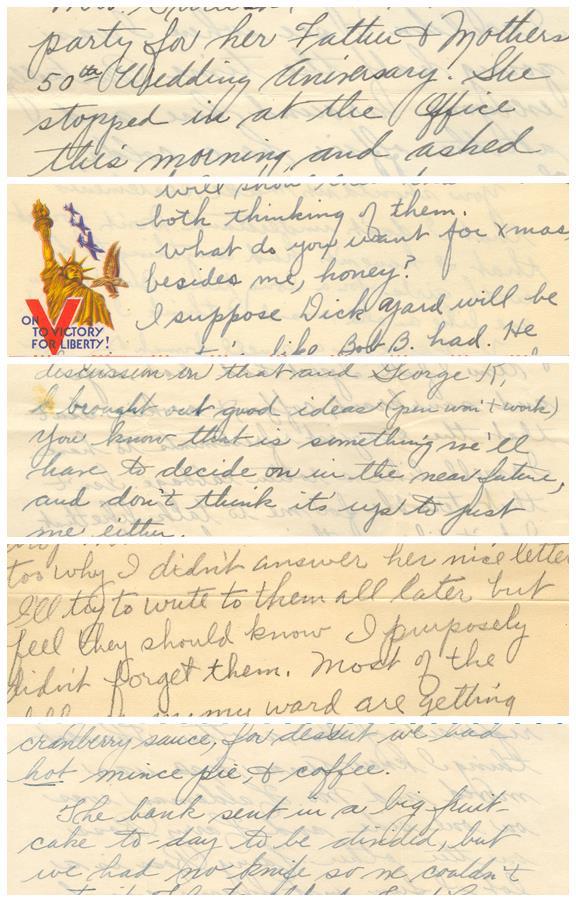 party for her Father & Mothers
50th Wedding Aniversary. She
stopped in at the Office
this morning and asked
both thinking of them.
what do you want for xmas,
besides me, honey?
I suppose Dick Ayard will be
like Bob B. had. He
ON
TO VICTORY
FOR LIBERTY!
discussion on that and George K,
& brought out good ideas (pen won't work)
You know that is something we'll
have to decide on in the near future,
and don't think it's up to just
me either.
too why I didn't answer her nice letter
I'll try to write to them all later but
feel they should know I purposely
didn't forget them. Most of the
my ward are getting
cranberry sauce, for dessut we had
hot mince pie, & coffee.
The bank sent in a big fruit-
cake to-day to be divided, but
we had no knife so we couldn't